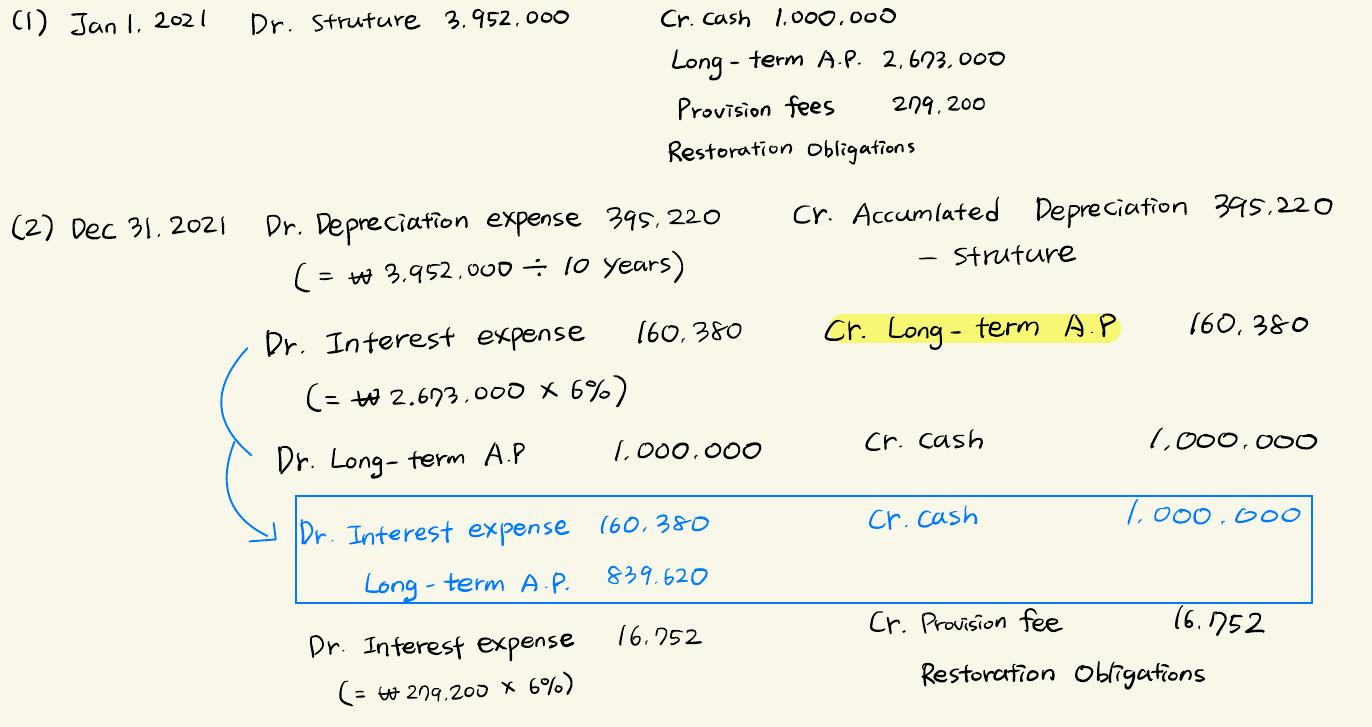 (1) Jan 1. 2021 Dr. Struture 3.952.000 Cr. cash 1.000.000
Long-term A.P. 2,673,000
Provision fees 279.200
Restoration Obligations
(2) Dec 31. 2021 Dr. Depreciation expense 395,220 Cr. Accumlated Depreciation 395.220
(= ₩ 3.952.000 ÷ 10 years) - Struture
Dr. Interest expense 160,380 Cr. Long-term A.P 160,380
(= ₩ 2.673.000 × 6%)
Dr. Long-term A.P 1.000.000 Cr. cash 1,000.000
Dr. Interest expense 160.380 Cr. cash 1.000.000
Long-term A.P. 839.620
Dr. Interest expense 16.752 Cr. Provision fee 16.752
(= ₩ 279,200 × 6%) Restoration Obligations